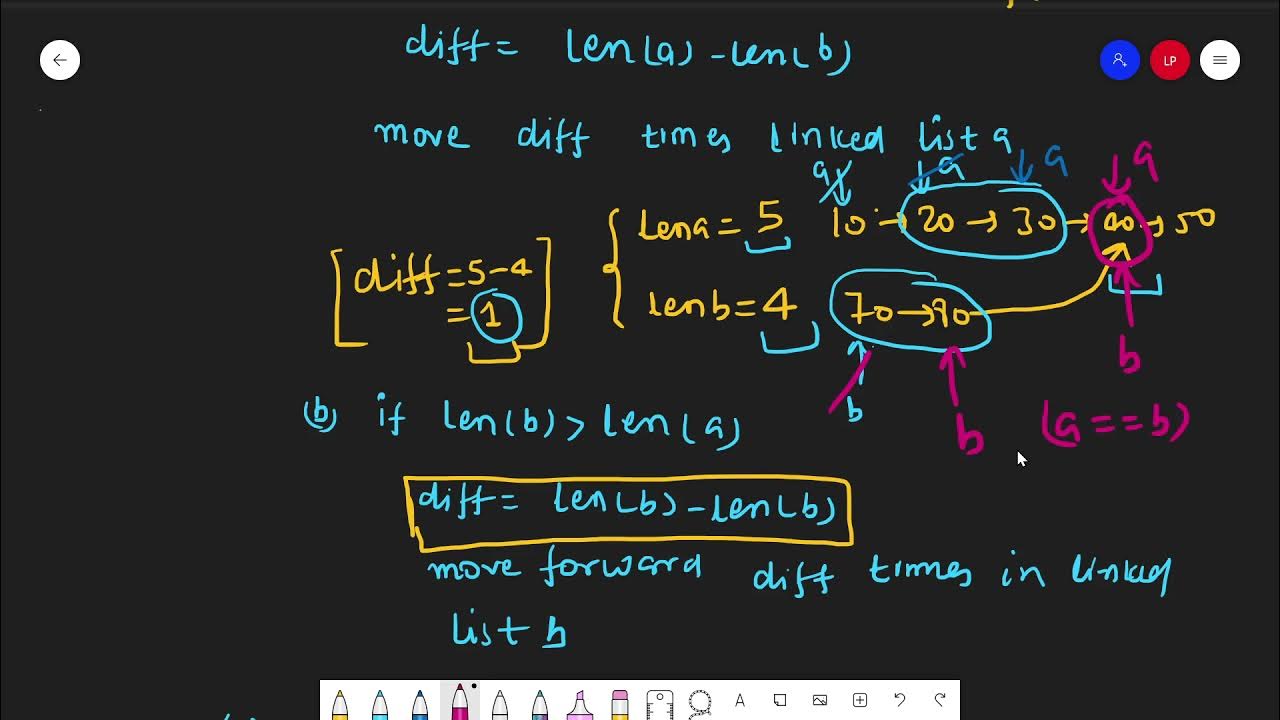 diff = len(a) - len(b)
LP
move diff times linked list a
a a a a
lena = 5 10 → 20 → 30 → 40 → 50
diff = 5-4
= 1
lenb = 4 70 → 90
b b b
(b) if len(b) > len(a) (a == b)
diff = len(b) - len(b)
move forward diff times in linked
list b
A